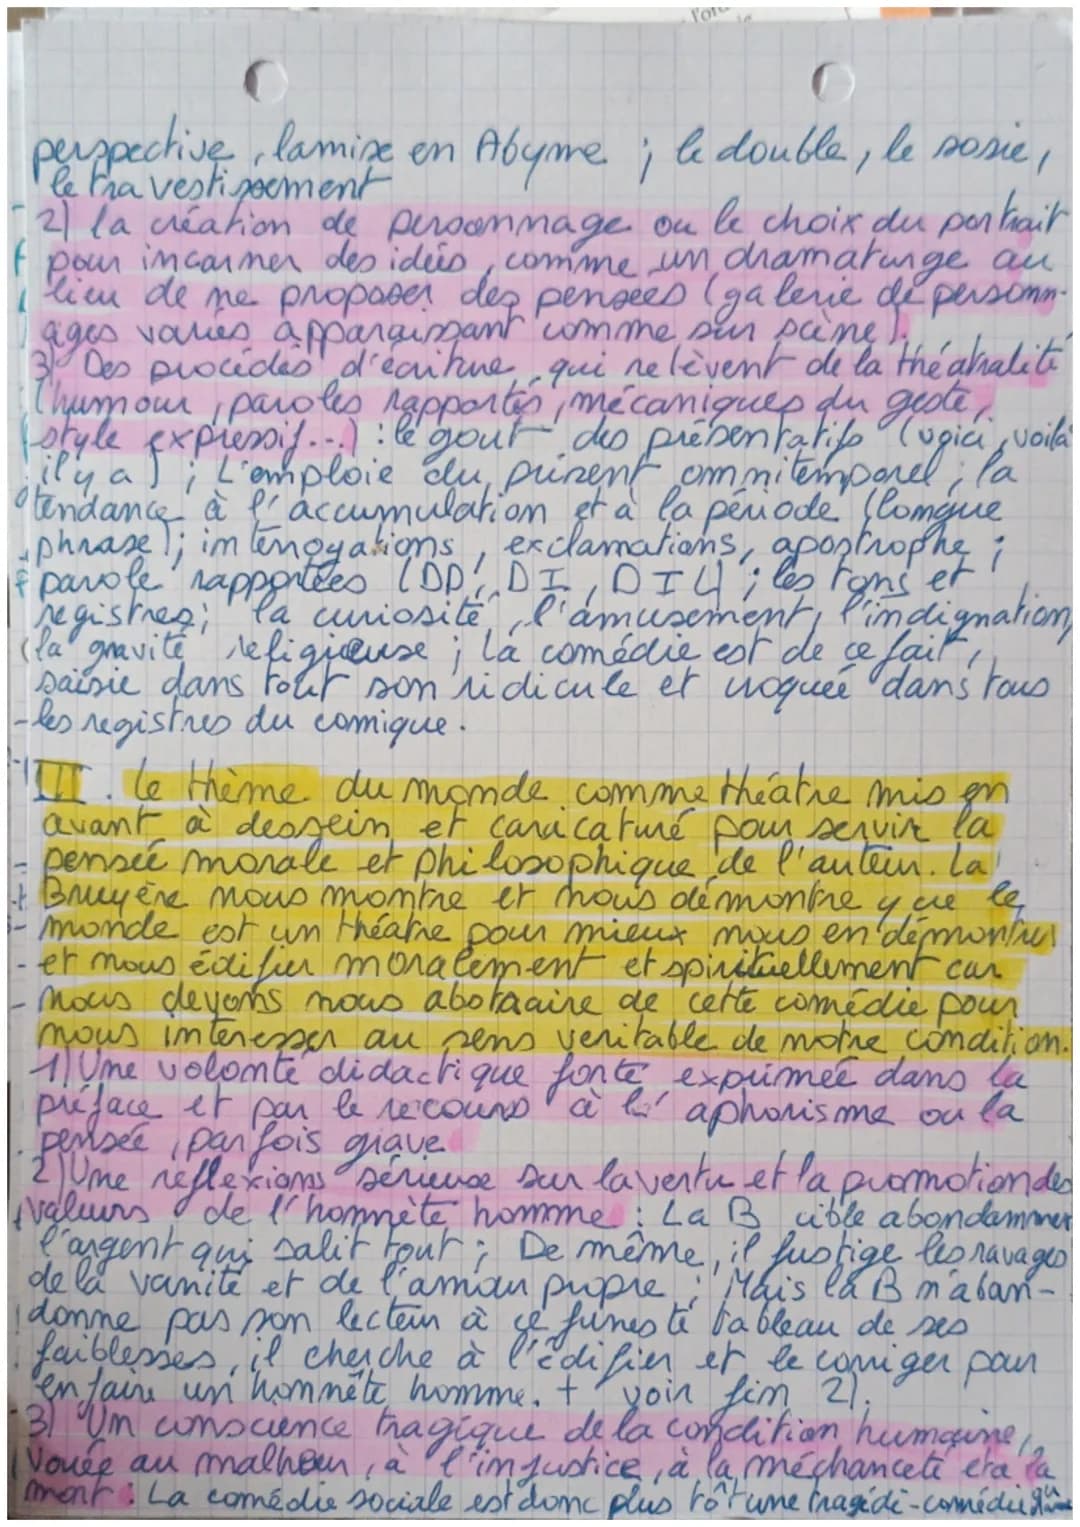 perspective, la mise en Abyme ; le double, le sosie,
le travestissement
2) la création de personnage ou le choix du portrait
pour incarner des idées, comme un dramaturge au
lieu de ne proposer des pensées (galerie de personn-
ages variés apparaissant comme sur scène).
3) Des procédés d'écriture qui relèvent de la théatralité
(humour, paroles rapportés, mécaniques du geste,
style expressif...) : le gout des présentatifs (voici, voilà
il y a) ; L'emploie du présent omnitemporel ; la
tendance à l'accumulation et à la période (longue
phrase) ; interrogations, exclamations, apostrophe ;
parole rapportées (DD, DI, DIL) ; les tons et
registres; la curiosité, l'amusement, l'indignation,
la gravité religieuse ; la comédie est de ce fait,
saisie dans tout son ridicule et croquée dans tous
les registres du comique.
III. le thème du monde comme théâtre mis en
avant à dessein et caricaturé pour servir la
pensée morale et philosophique de l'auteur. La
Bruyère nous montre et nous démontre que le
monde est un théâtre pour mieux nous en démontrer
et nous édifier moralement et spirituellement car
nous devons nous abstraire de cette comédie pour
nous intéresser au sens veritable de notre condition.
1) Une volonté didactique forte exprimée dans la
préface et par le recours à l'aphorisme ou la
pensée, parfois grave
2) Une reflexions sérieuse sur la vertu et la promotion des
valeurs de l'honnête homme : La B cible abondammer
l'argent qui salit tout ; De même, il fustige les ravages
de la vanité et de l'amour propre ; Mais la B n'aban-
donne pas son lecteur à ce funeste tableau de ses
faiblesses, il cherche à l'édifier et le corriger pour
en faire un honnête homme. + voir fin 2).
3) Un conscience tragique de la condition humaine,
Vouée au malheur, à l'injustice, à la méchanceté et à la
mort : La comédie sociale est donc plus tôt une tragédi-comédie